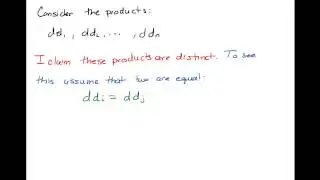 Consider the products:
dd₁, dd₂, ..., ddₙ
I claim these products are distinct. To see
this assume that two are equal:
ddᵢ = ddⱼ